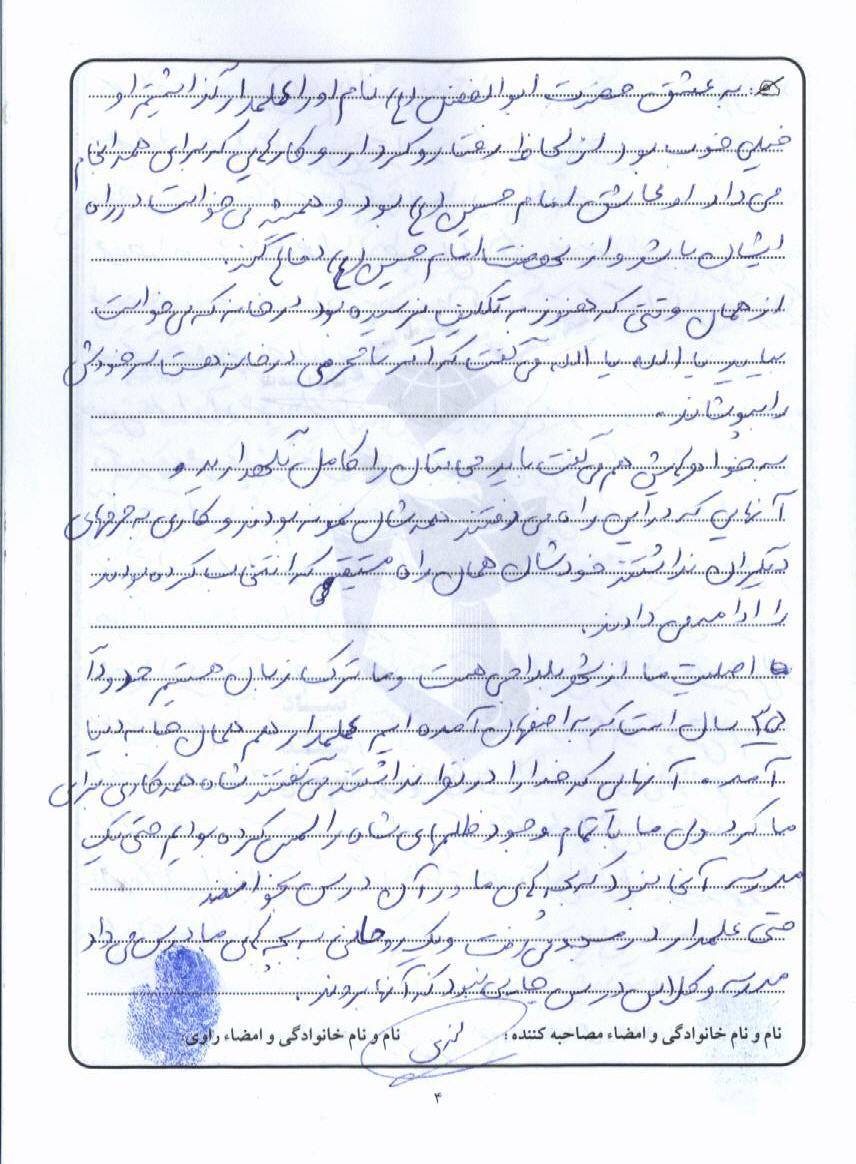 به عشق حضرت ابوالفضل (ع) نام او را علمدار گذاشتیم او
خیلی خوب بود از لحاظ رفتار و کردار و کارهایی که برای همه انجام
می داد. او عاشق امام حسین (ع) بود و همیشه می خواست در راه
ایشان باشد و از نهضت امام حسین (ع) دفاع کند.
از همان وقتی که هنوز به تکلیف نرسیده بود در خانه که می خواست
بیاید یا الله یا الله می گفت که اگر نامحرمی در خانه هست سر خودش
را بپوشاند.
به خواهرهایش هم می گفت باید حجابتان را کامل نگهدارید و
آنهایی که در این راه می رفتند همه شان نمونه بودند و کاری به حرفهای
دیگران نداشتند خودشان همان راه مستقیم که انتخاب کرده بودند
را ادامه می دادند.
اصلیت ما از بلداجی هست و ما ترک زبان هستیم حدوداً
۳۵ سال است که به اصفهان آمده ایم علمدار هم همان جا به دنیا
آمد. آنهایی که خدا را در نظر نداشتند می گفتند شاه همه کاری برای
ما کرد ولی ما با تمام وجود ظلمهای شاه را لمس کرده بودیم حتی یک
مدرسه آنجا نبود که بچه های ما در آن درس بخوانند
حتی علمدار در مسجد می رفت و یک روحانی به بچه های ما درس می داد
مدرسه و کلاس درس جایی نبود که آنها بروند.
نام و نام خانوادگی و امضاء مصاحبه کننده : نام و نام خانوادگی و امضاء راوی:
۴